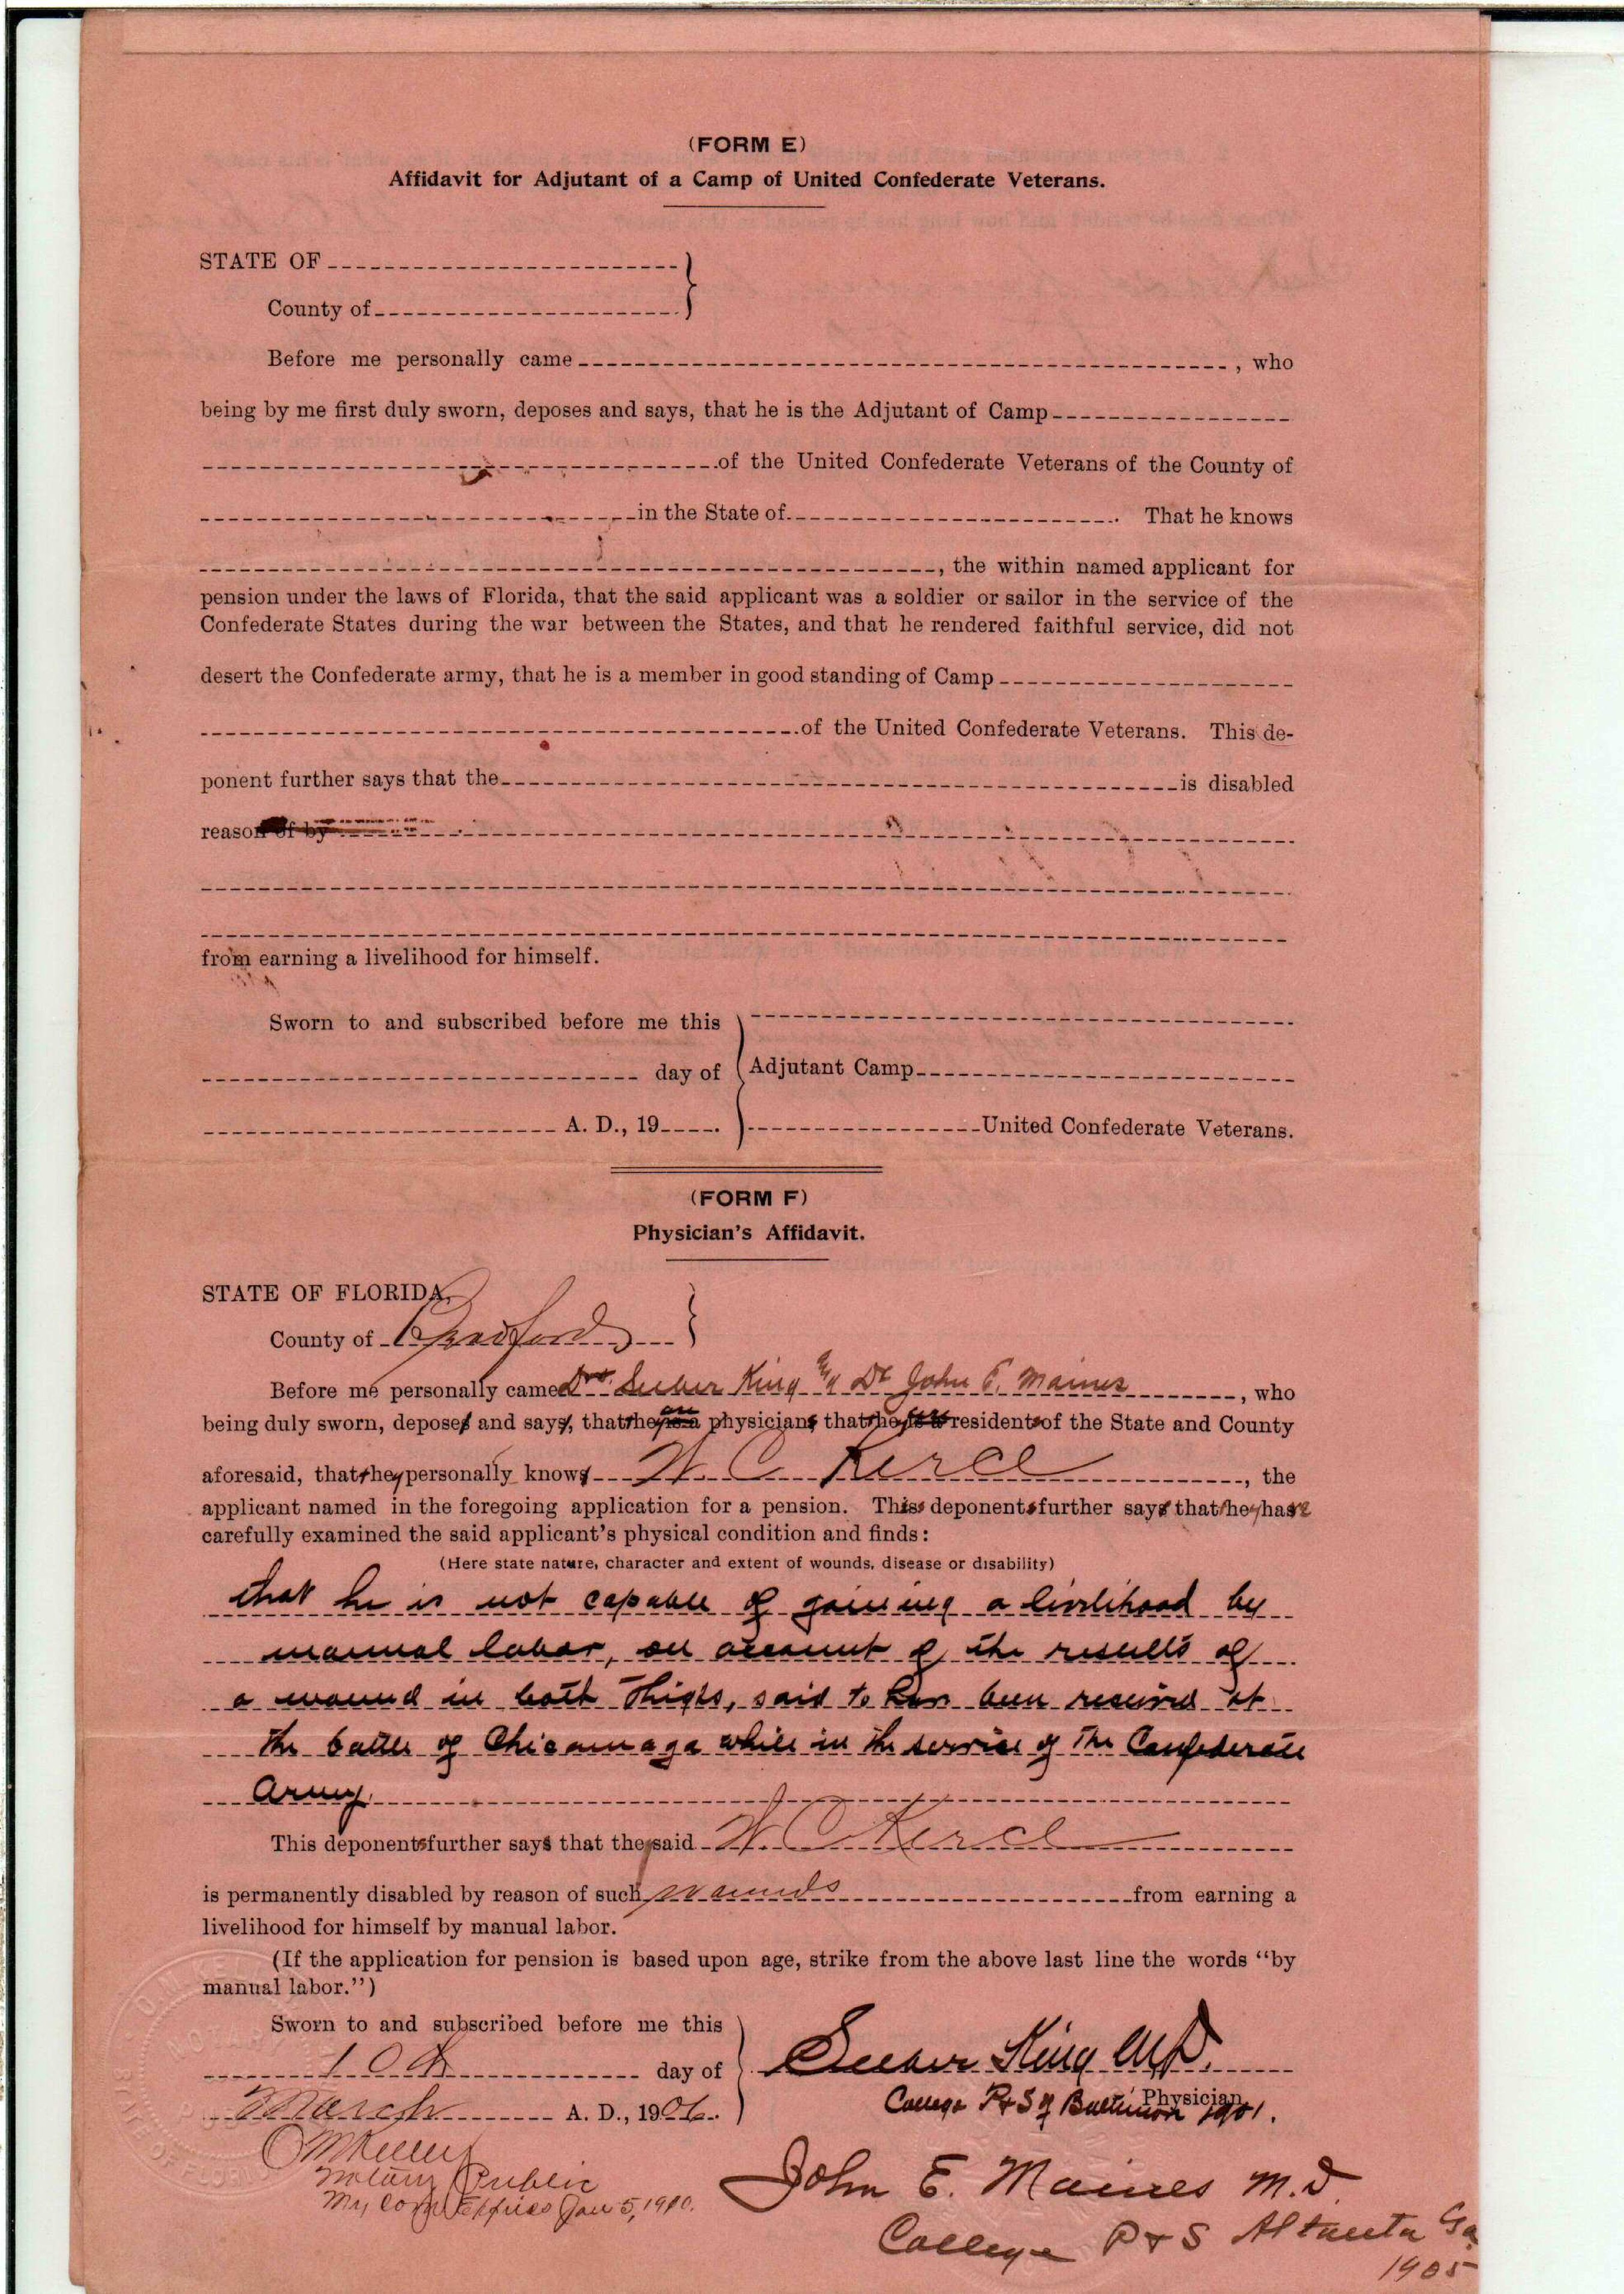 (FORM E)
Affidavit for Adjutant of a Camp of United Confederate Veterans.
STATE OF
County of
Before me personally came , who
being by me first duly sworn, deposes and says, that he is the Adjutant of Camp
of the United Confederate Veterans of the County of
in the State of . That he knows
, the within named applicant for
pension under the laws of Florida, that the said applicant was a soldier or sailor in the service of the
Confederate States during the war between the States, and that he rendered faithful service, did not
desert the Confederate army, that he is a member in good standing of Camp
of the United Confederate Veterans. This de-
ponent further says that the is disabled
reason of by
from earning a livelihood for himself.
Sworn to and subscribed before me this
day of Adjutant Camp
A. D., 19 . United Confederate Veterans.
(FORM F)
Physician's Affidavit.
STATE OF FLORIDA,
County of Bradford
Before me personally came Drs. Seeber King & Dr John E. Maines , who
being duly sworn, depose and say, that they are physicians, that they are residents of the State and County
aforesaid, that they personally know W. C. Kerce , the
applicant named in the foregoing application for a pension. This deponents further say that they have
carefully examined the said applicant's physical condition and finds:
(Here state nature, character and extent of wounds, disease or disability)
that he is not capable of gaining a livelihood by
manual labor, on account of the results of
a wound in both thighs, said to have been received at
the battle of Chicamaga while in the service of the Confederate
Army.
This deponents further says that the said W. C. Kerce
is permanently disabled by reason of such wounds from earning a
livelihood for himself by manual labor.
(If the application for pension is based upon age, strike from the above last line the words "by
manual labor.")
Sworn to and subscribed before me this
10th day of Seeber King M.D.
Physician
March A. D., 1906. College P & S of Baltimore 1901.
O M Kelley
Notary Public
My Com Expires Jan 5, 1910.
John E. Maines M.D.
College P & S Atlanta Ga.
1905